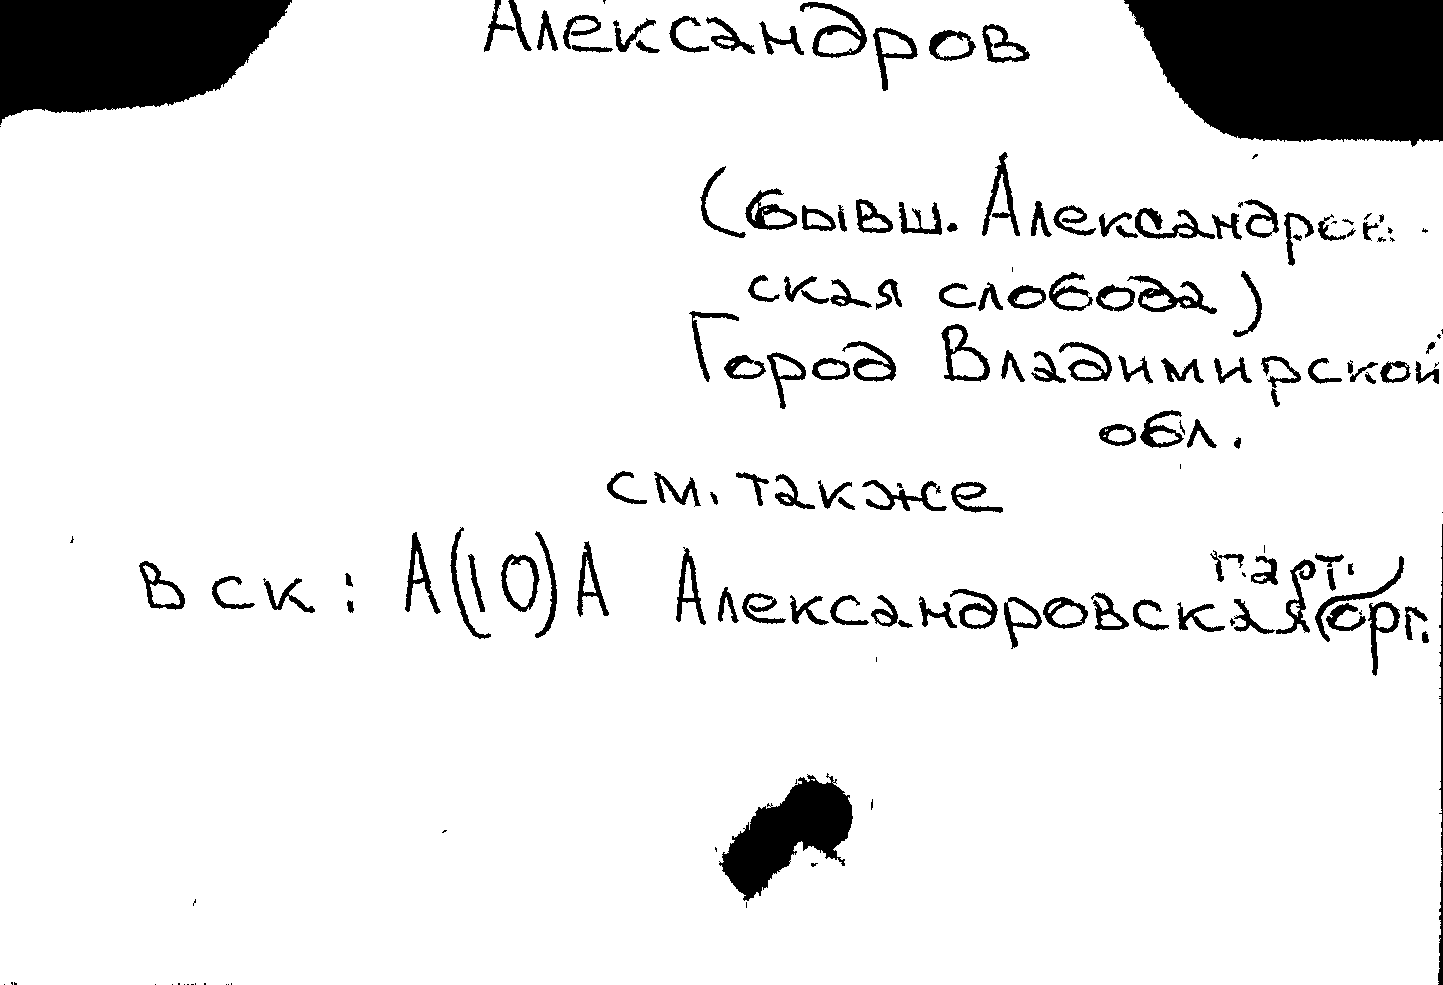 Александров
(бывш. Александров-
ская слобода)
Город Владимирской
обл.
см. также
В СК: А(10)А Александровская парт. орг.